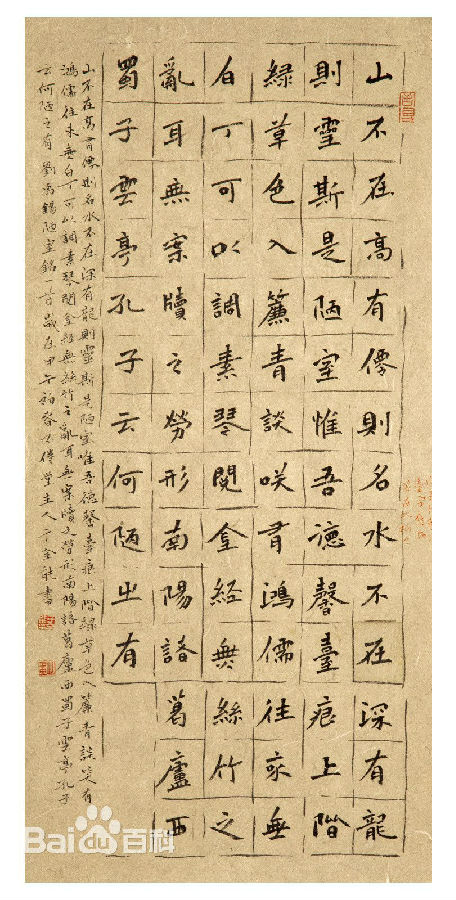 山不在高有僊則名水不在深有龍
則靈斯是陋室惟吾德馨臺痕上階
綠草色入簾青談咲有鴻儒往來無
白丁可以調素琴閱金經無絲竹之
亂耳無案牘之勞形南陽諸葛廬西
蜀子雲亭孔子云何陋之有
山不在高有僊則名水不在深有龍則靈斯是陋室唯吾德馨臺痕上階綠草色入簾青談笑有
鴻儒往來無白丁可以調素琴閱金經無絲竹之亂耳無案牘之勞形南陽諸葛廬西蜀子雲亭孔子
云何陋之有劉禹錫陋室銘一首歲在甲午初春堂主人書
Bai百科